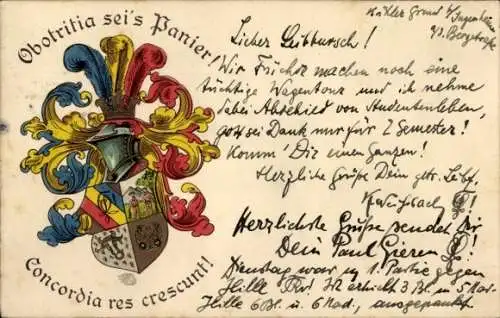 Obotritia sei's Panier!
Kühler Grund b/ Jugenheim
a/d. Bergstraße
Lieber Leibbursch!
Wir Füchse machen noch eine
tüchtige Wagentour und ich nehme
dabei Abschied von Studentenleben,
gott sei Dank nur für 2 Semester!
Komm' Dir einen Ganzen!
Herzliche Grüße Dein gtr. Leibf.
Herzlichste Grüße sendet Dir
Dein Paul Gieren
Dienstag war in 1. Partie gegen
Hille 3 Bl. u. 5 Nad.
Hille 6 Bl. u. 6 Nad., ausgepaukt.
Concordia res crescunt!